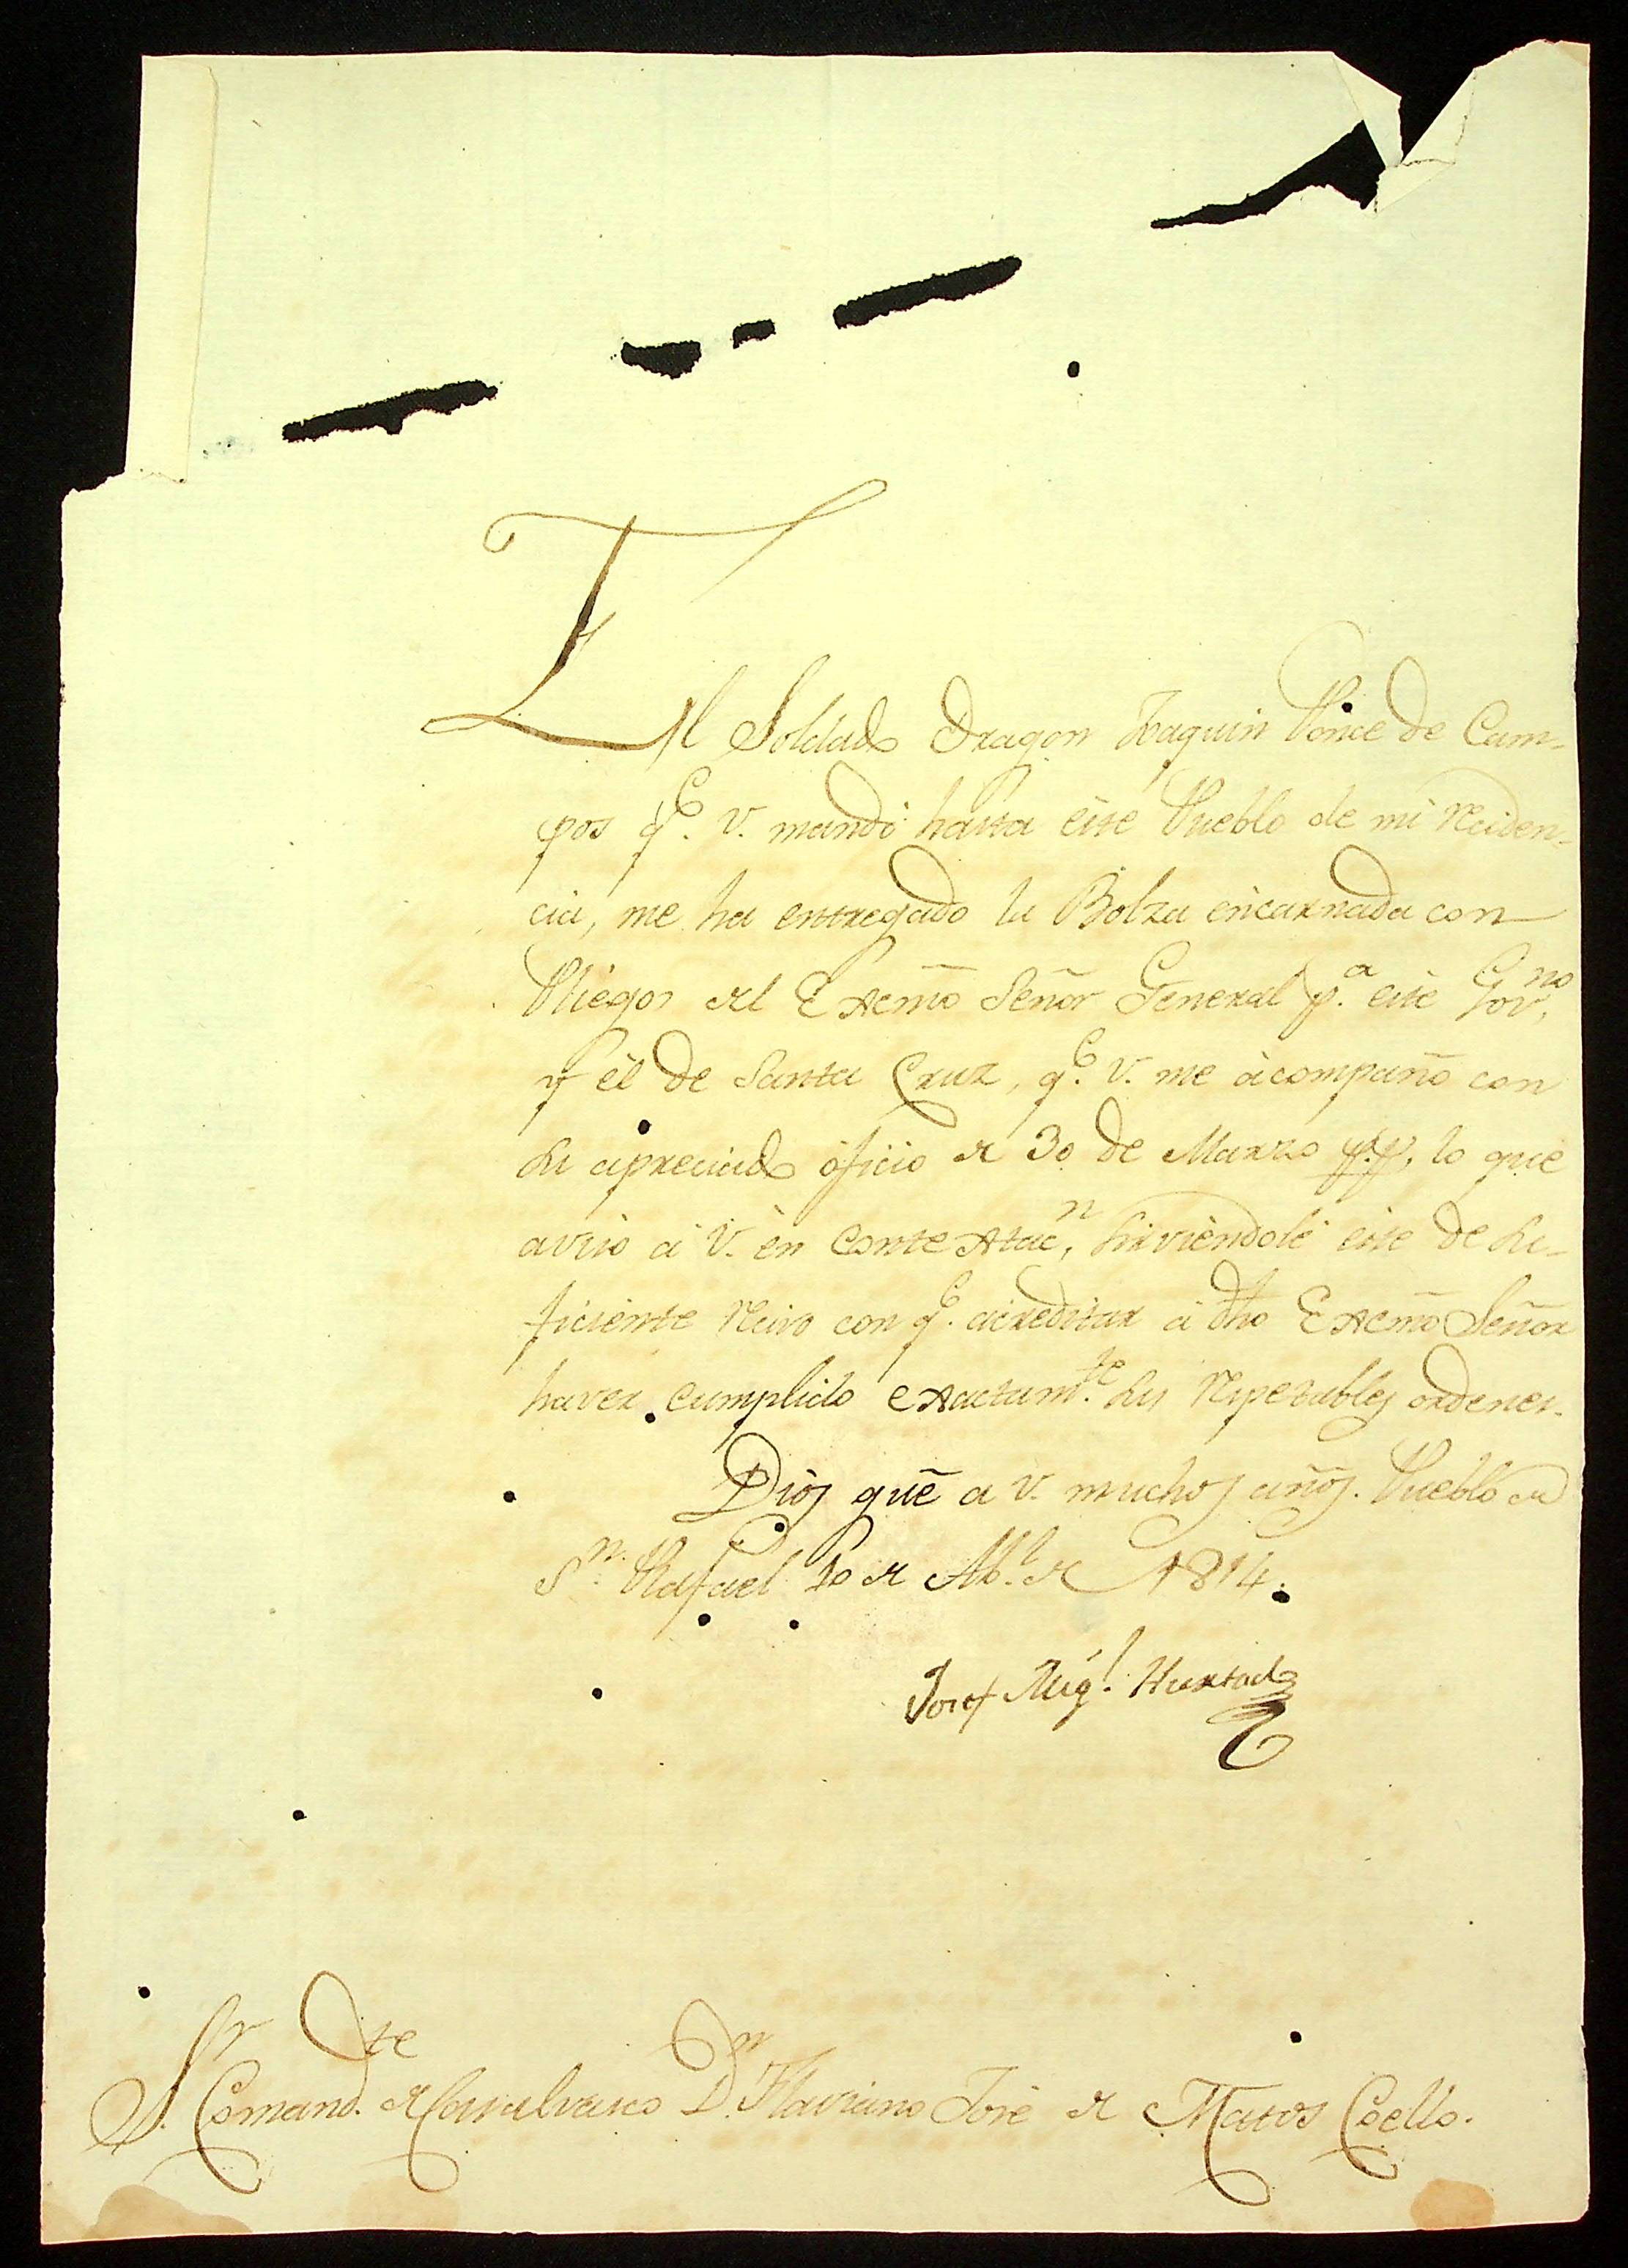 El Soldado Dragon Joaquin Ponce de Cam-
pos q.e V. mandó hasta este Pueblo de mi residen-
cia, me ha entregado la Bolza encarnada con
Pliegos del Excm̃o Señor General p.a este Gov.no,
y el de Santa Cruz, q.e V. me acompañó con
su apreciado oficio de 30 de Marzo pp., lo que
aviso á V. en contextac.n, sirviendole este de su-
ficiente recivo con q.e acreditar á dho Excm̃o Señor
haver cumplido exactam.te sus respetables ordenes.
Dios gũe a V. muchos años. Pueblo de
S.n Rafael 10 de Ab.l de 1814.
Josef Mig.l Hurtado
S.r Comand.te de Casalvasco D.n Flaviano José de Matos Coello.